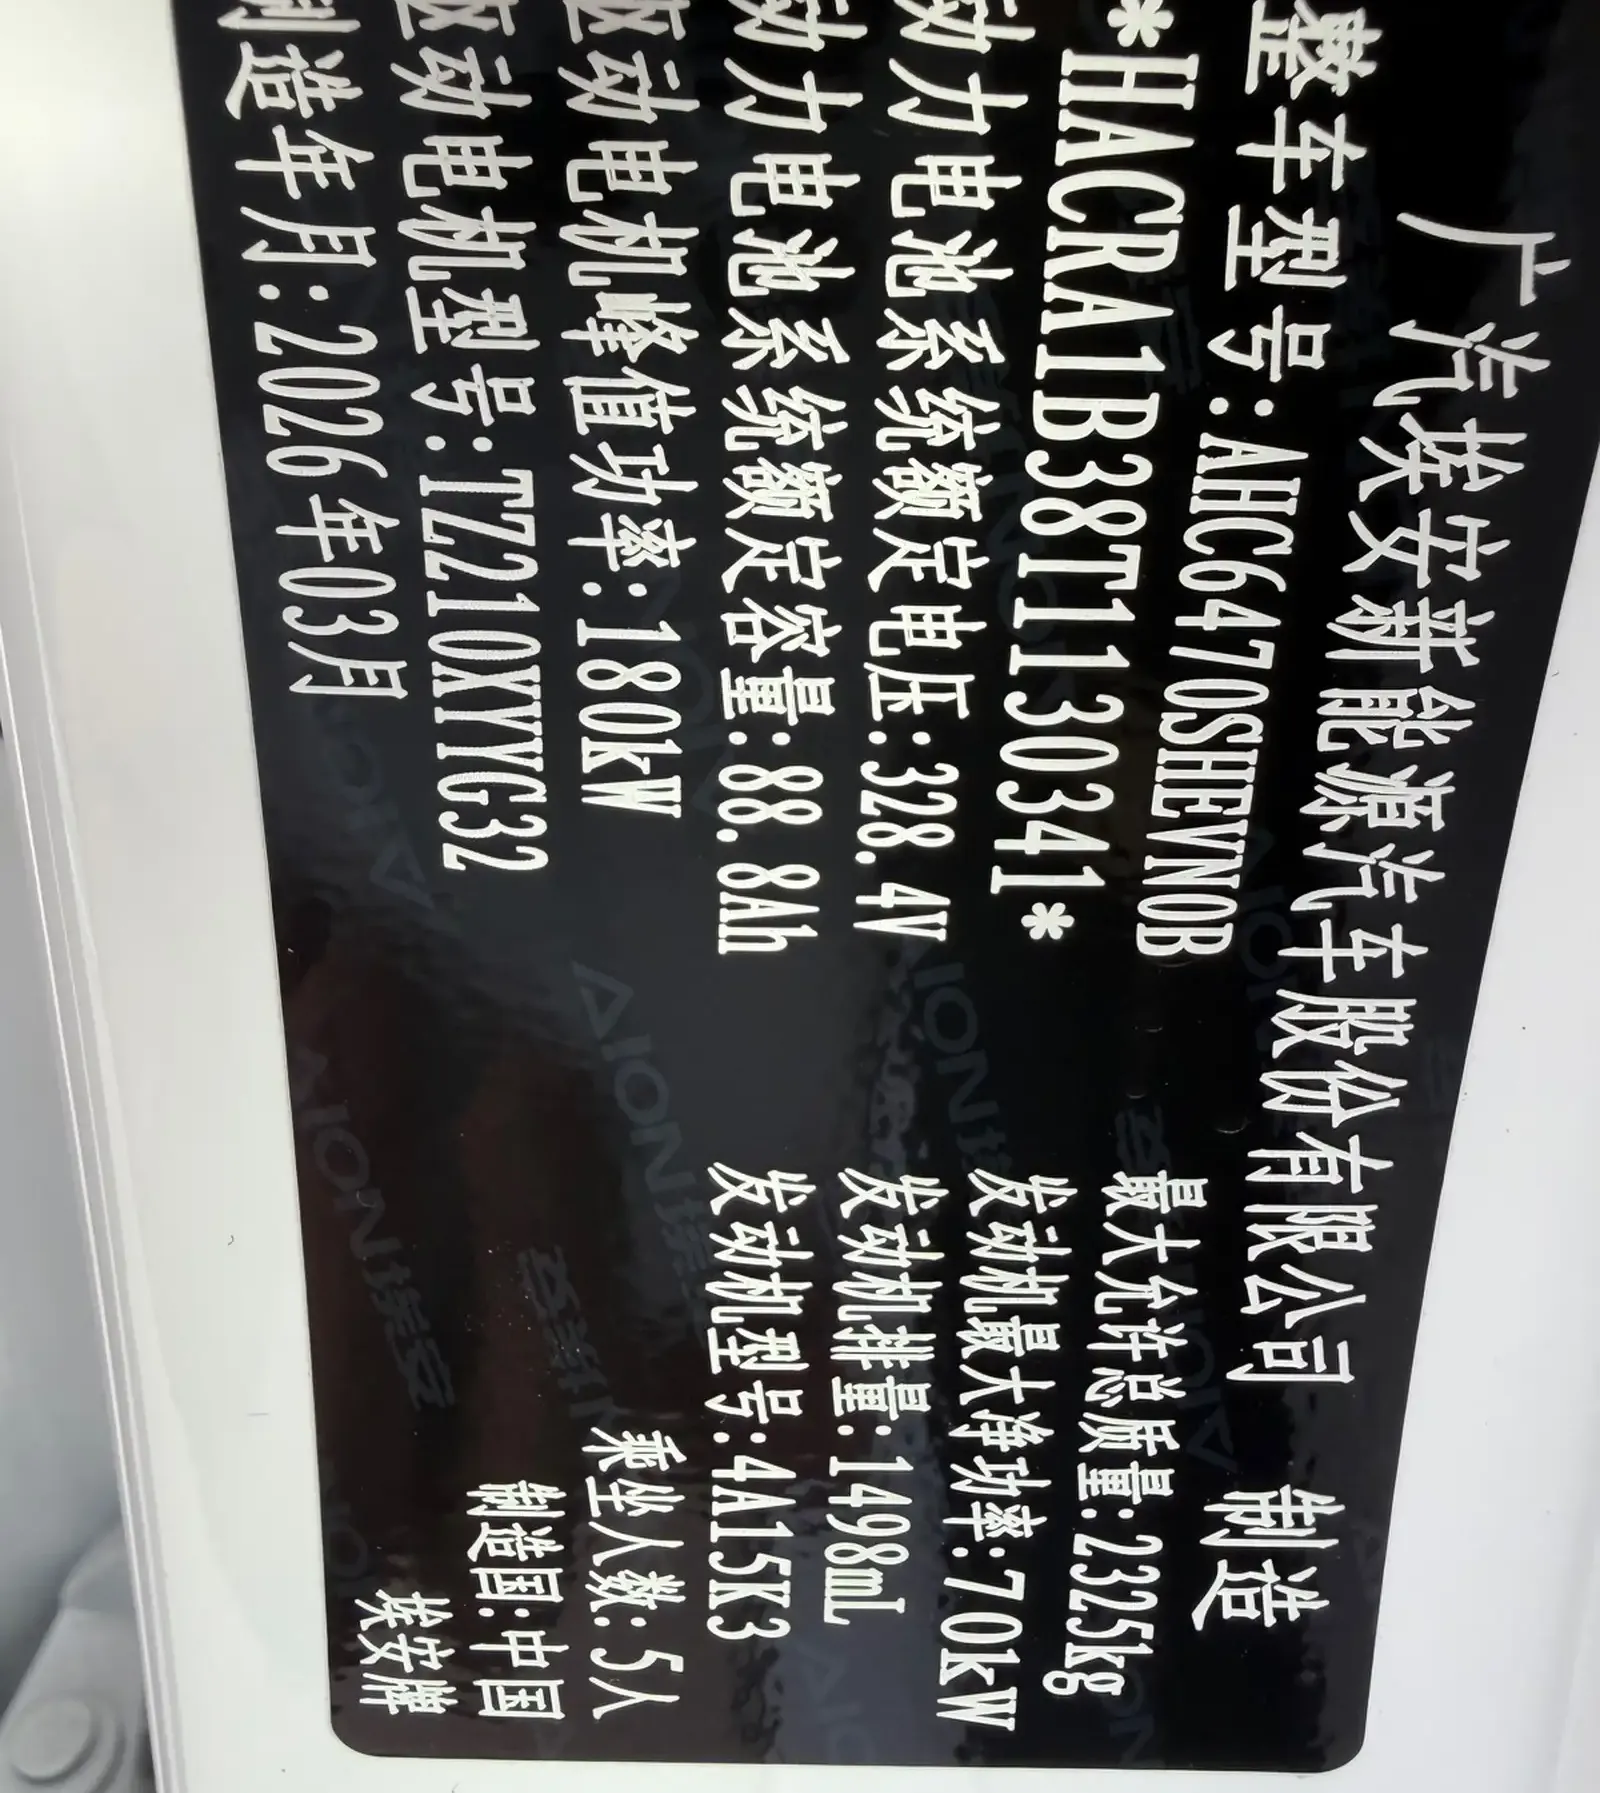 广汽埃安新能源汽车股份有限公司 制造
整车型号:AHC6470SHEVN0B
*HACRA1B38T1130341*
最大允许总质量:2325kg
动力电池系统额定电压:328.4V
发动机最大净功率:70kW
动力电池系统额定容量:88.8Ah
发动机排量:1498mL
驱动电机峰值功率:180kW
发动机型号:4A15K3
驱动电机型号:TZ210XYYG32
乘坐人数:5人
制造年月:2026年03月
制造国:中国
埃安牌
AION埃安